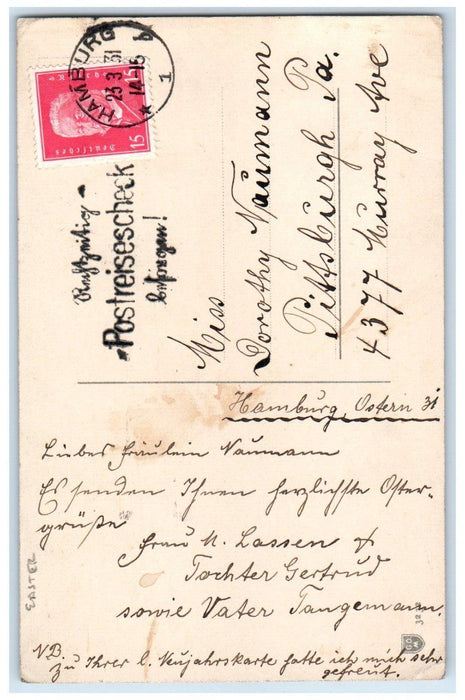 HAMBURG 1
23.3.31
14-15
Deutsches
15 15
Rechtzeitig -
Postreisescheck
besorgen!
Miss
Dorothy Naumann
Pittsburgh Pa.
4377 Murray Ave
Hamburg, Ostern 31
Liebes Fräulein Naumann
Es senden Ihnen herzlichste Oster-
grüße
Frau M. Lassen &
Tochter Gertrud
sowie Vater Tangemann.
NB.
zu Ihrer l. Neujahrskarte hatte ich mich sehr
gefreut.
EASTER